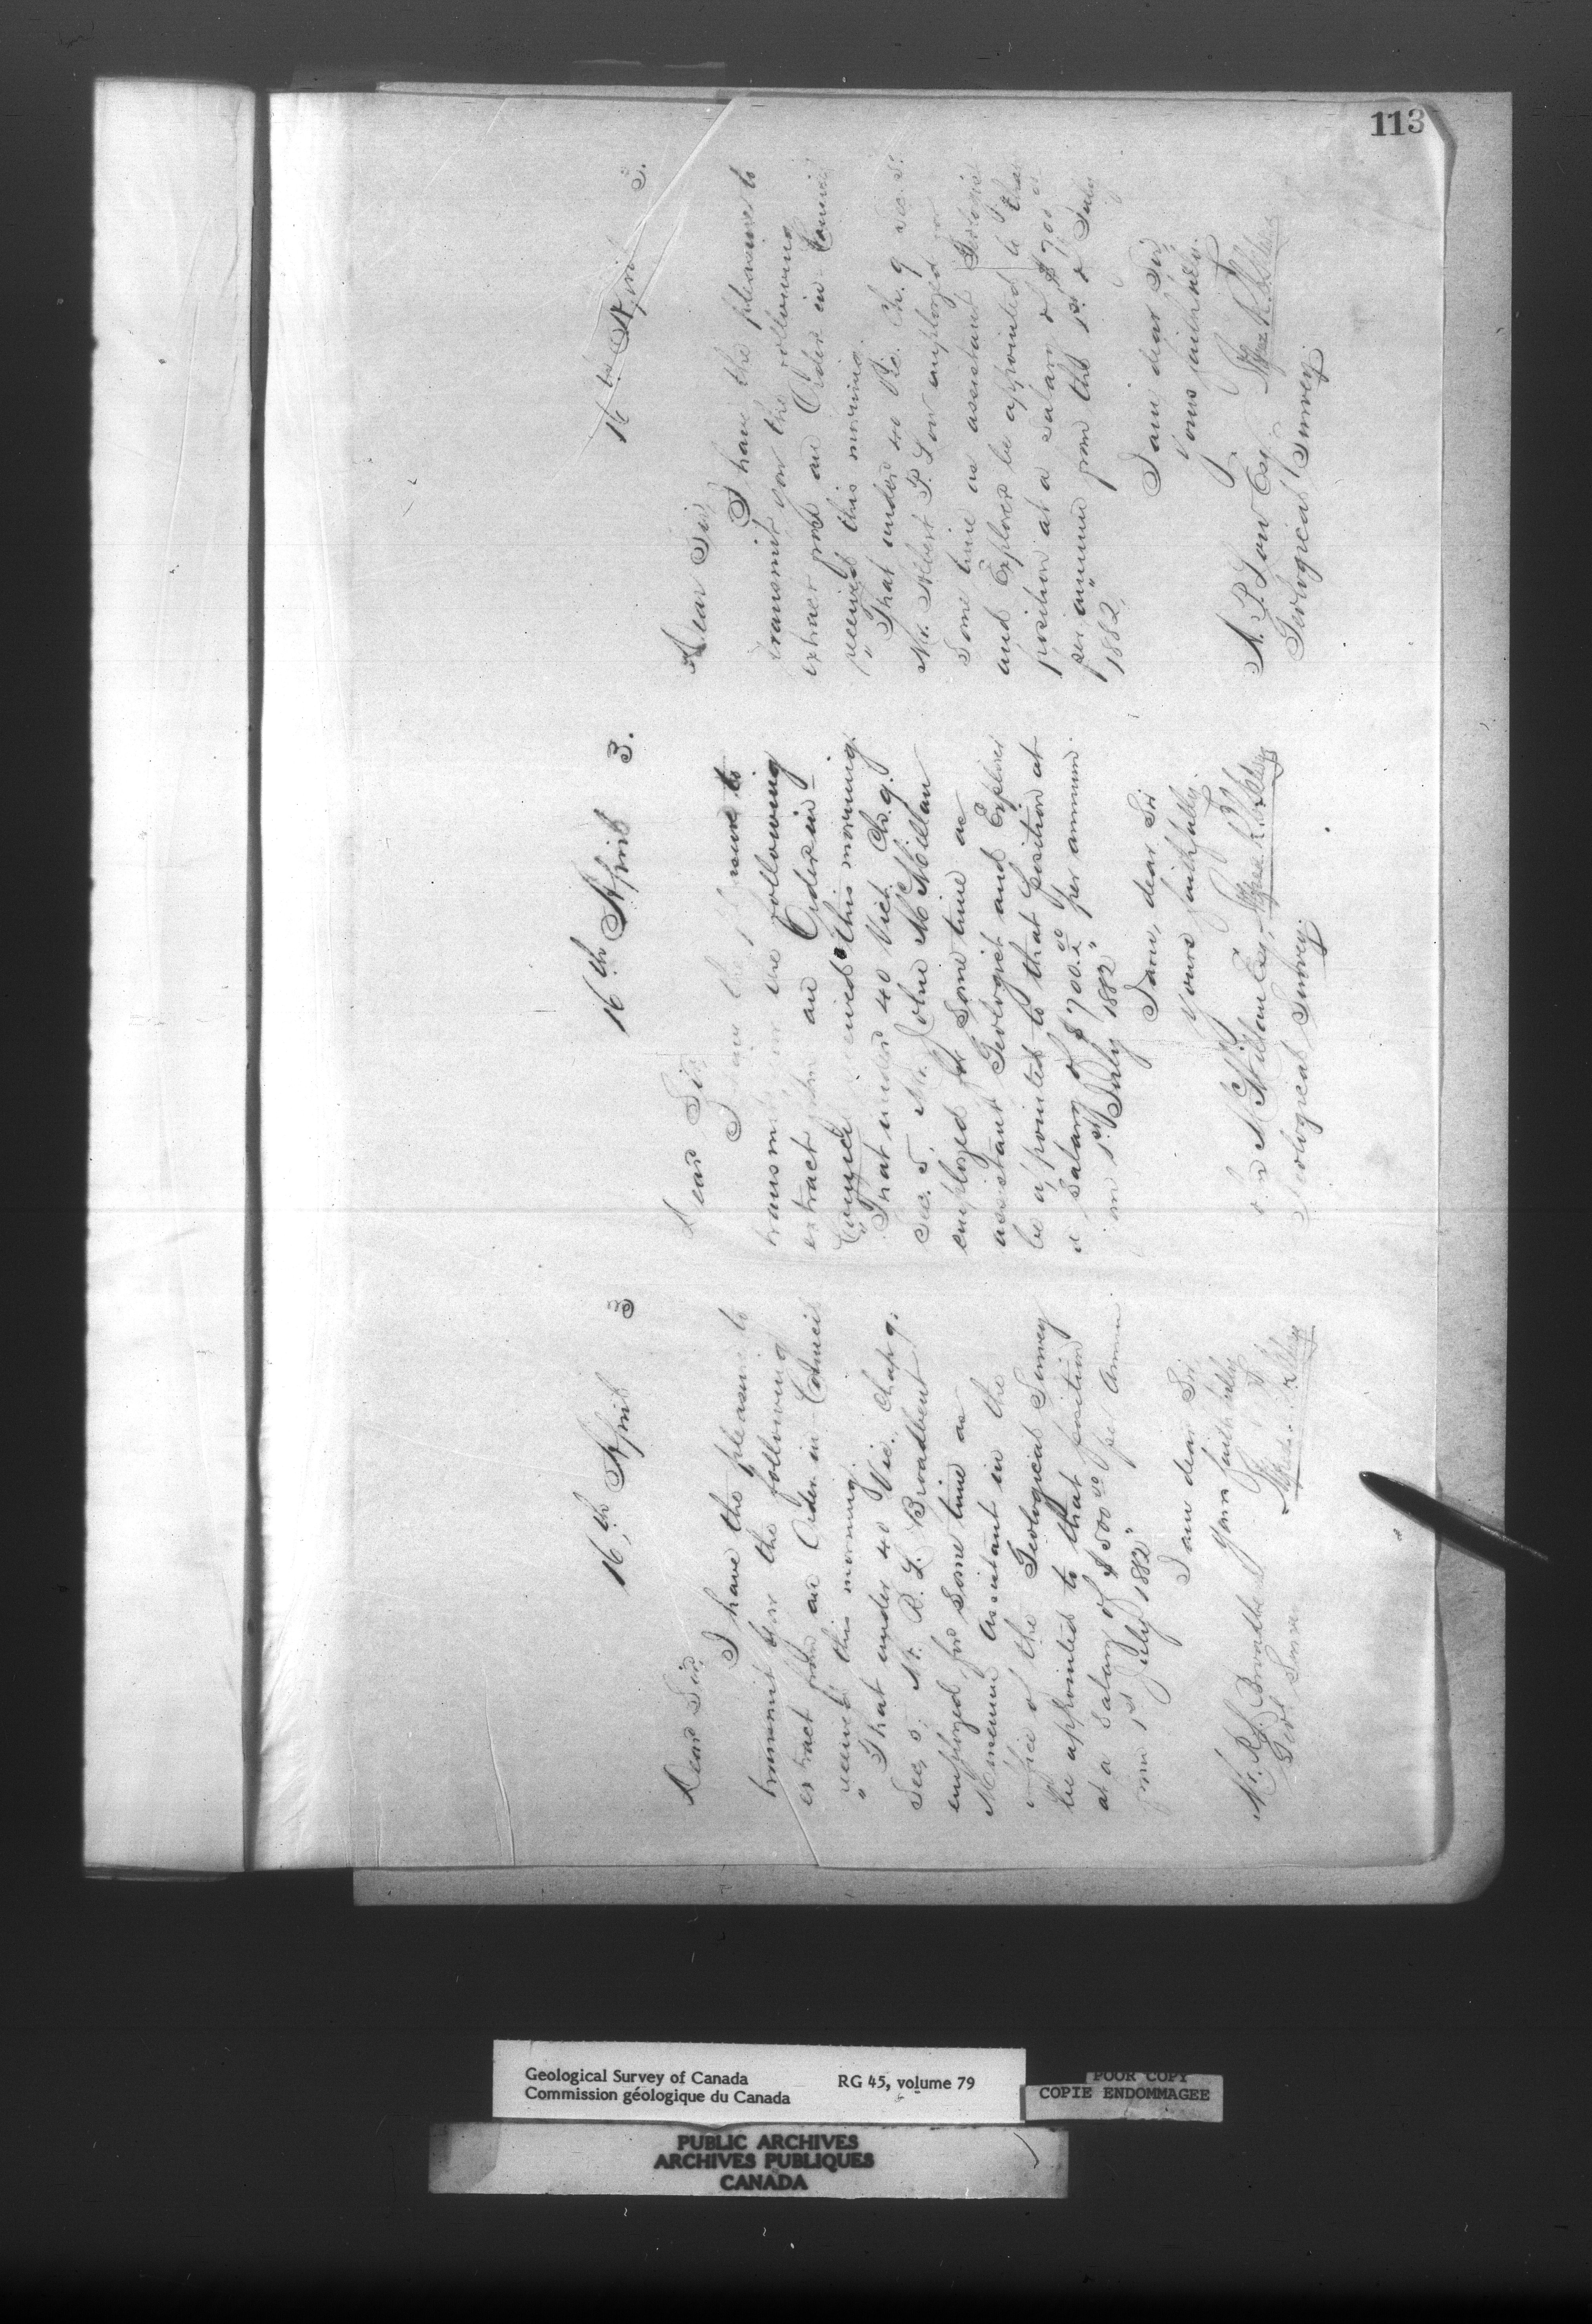 113
16th April 3
Dear Sir,
I have the pleasure to
transmit you the following
extract from an Order in Council
received this morning.
"That under 40 Vic. Chap 9.
Sec, 5. Mr. R. L. Broadbent
employed for some time as
Museum assistant in the
office of the Geological Survey
be appointed to that position
at a Salary of $500 00 per Annum
from 1st July 1882"
I am dear Sir
Yours faithfully
Mr. R. L. Broadbent
Geol Surv
16th April 3.
Dear Sir
I have the pleasure to
transmit you the following
extract from an Order in
Council received this morning.
"That under 40 Vict. Ch. 9.
Sec. 5. Mr. John McMillan
employed for some time as
assistant Geologist and Explorer
be appointed to that position at
a Salary of $700.00 per annum.
from 1st July 1882"
I am, dear Sir
yours faithfully
John McMillan Esq.
Geological Survey
16th April 3.
Dear Sir,
I have the pleasure to
transmit you the following
extract from an Order in Council
received this morning.
"That under 40 Vic. Ch. 9 Sec. 5.
Mr. Albert P. Low employed for
some time as assistant Geologist
and Explorer be appointed to that
position at a salary of $700 00
per annum from the 1st of July
1882"
I am dear Sir,
yours faithfully.
A. P. Low Esq
Geological Survey
Geological Survey of Canada RG 45, volume 79
Commission géologique du Canada
POOR COPY
COPIE ENDOMMAGEE
PUBLIC ARCHIVES
ARCHIVES PUBLIQUES
CANADA